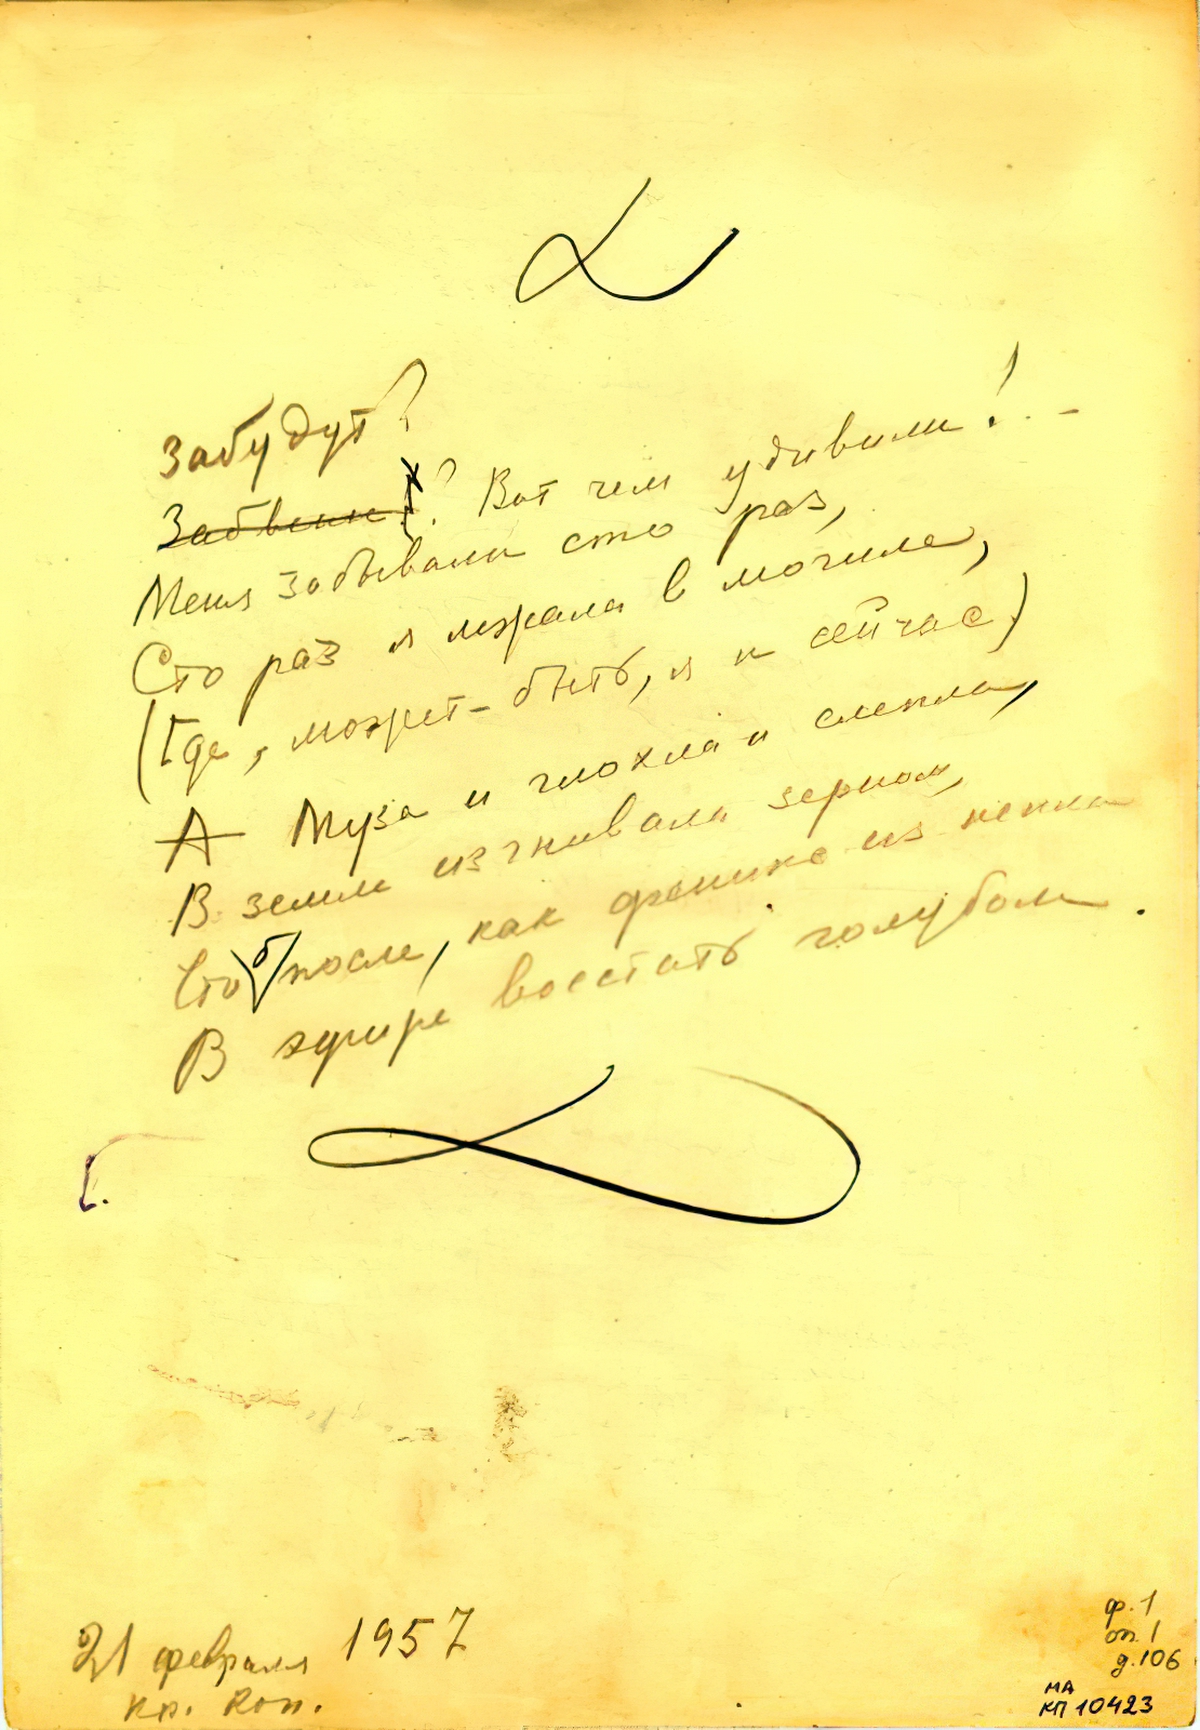 Забудут?
Забвенье? Вот чем удивили! . -
Меня забывали сто раз,
Сто раз я лежала в могиле,
(Где, может-быть, я и сейчас)
А Муза и глохла и слепла,
В земле изгнивала зерном,
Чтоб после, как феникс из пепла
В эфире восстать голубом.
21 февраля 1957
Кр. Кон.
ф.1
оп.1
д.106
МА
КП 10423